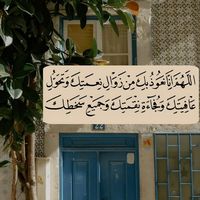 اللَّهُمَّ إِنَّا نَعُوذُ بِكَ مِنْ زَوَالِ نِعْمَتِكَ وَتَحَوُّلِ
عَافِيَتِكَ وَفُجَاءَةِ نِقْمَتِكَ وَجَمِيعِ سَخَطِكَ
22